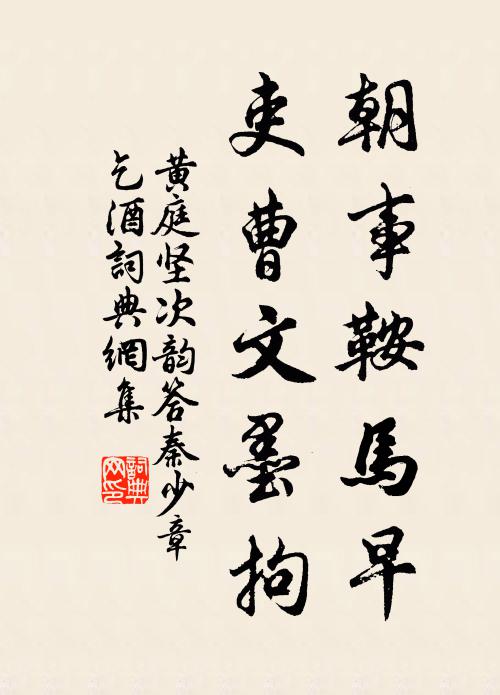 朝事鞍馬早
吏曹文墨拘
黄庭坚次韵答秦少章
乞酒詞典網集
詞典
网印